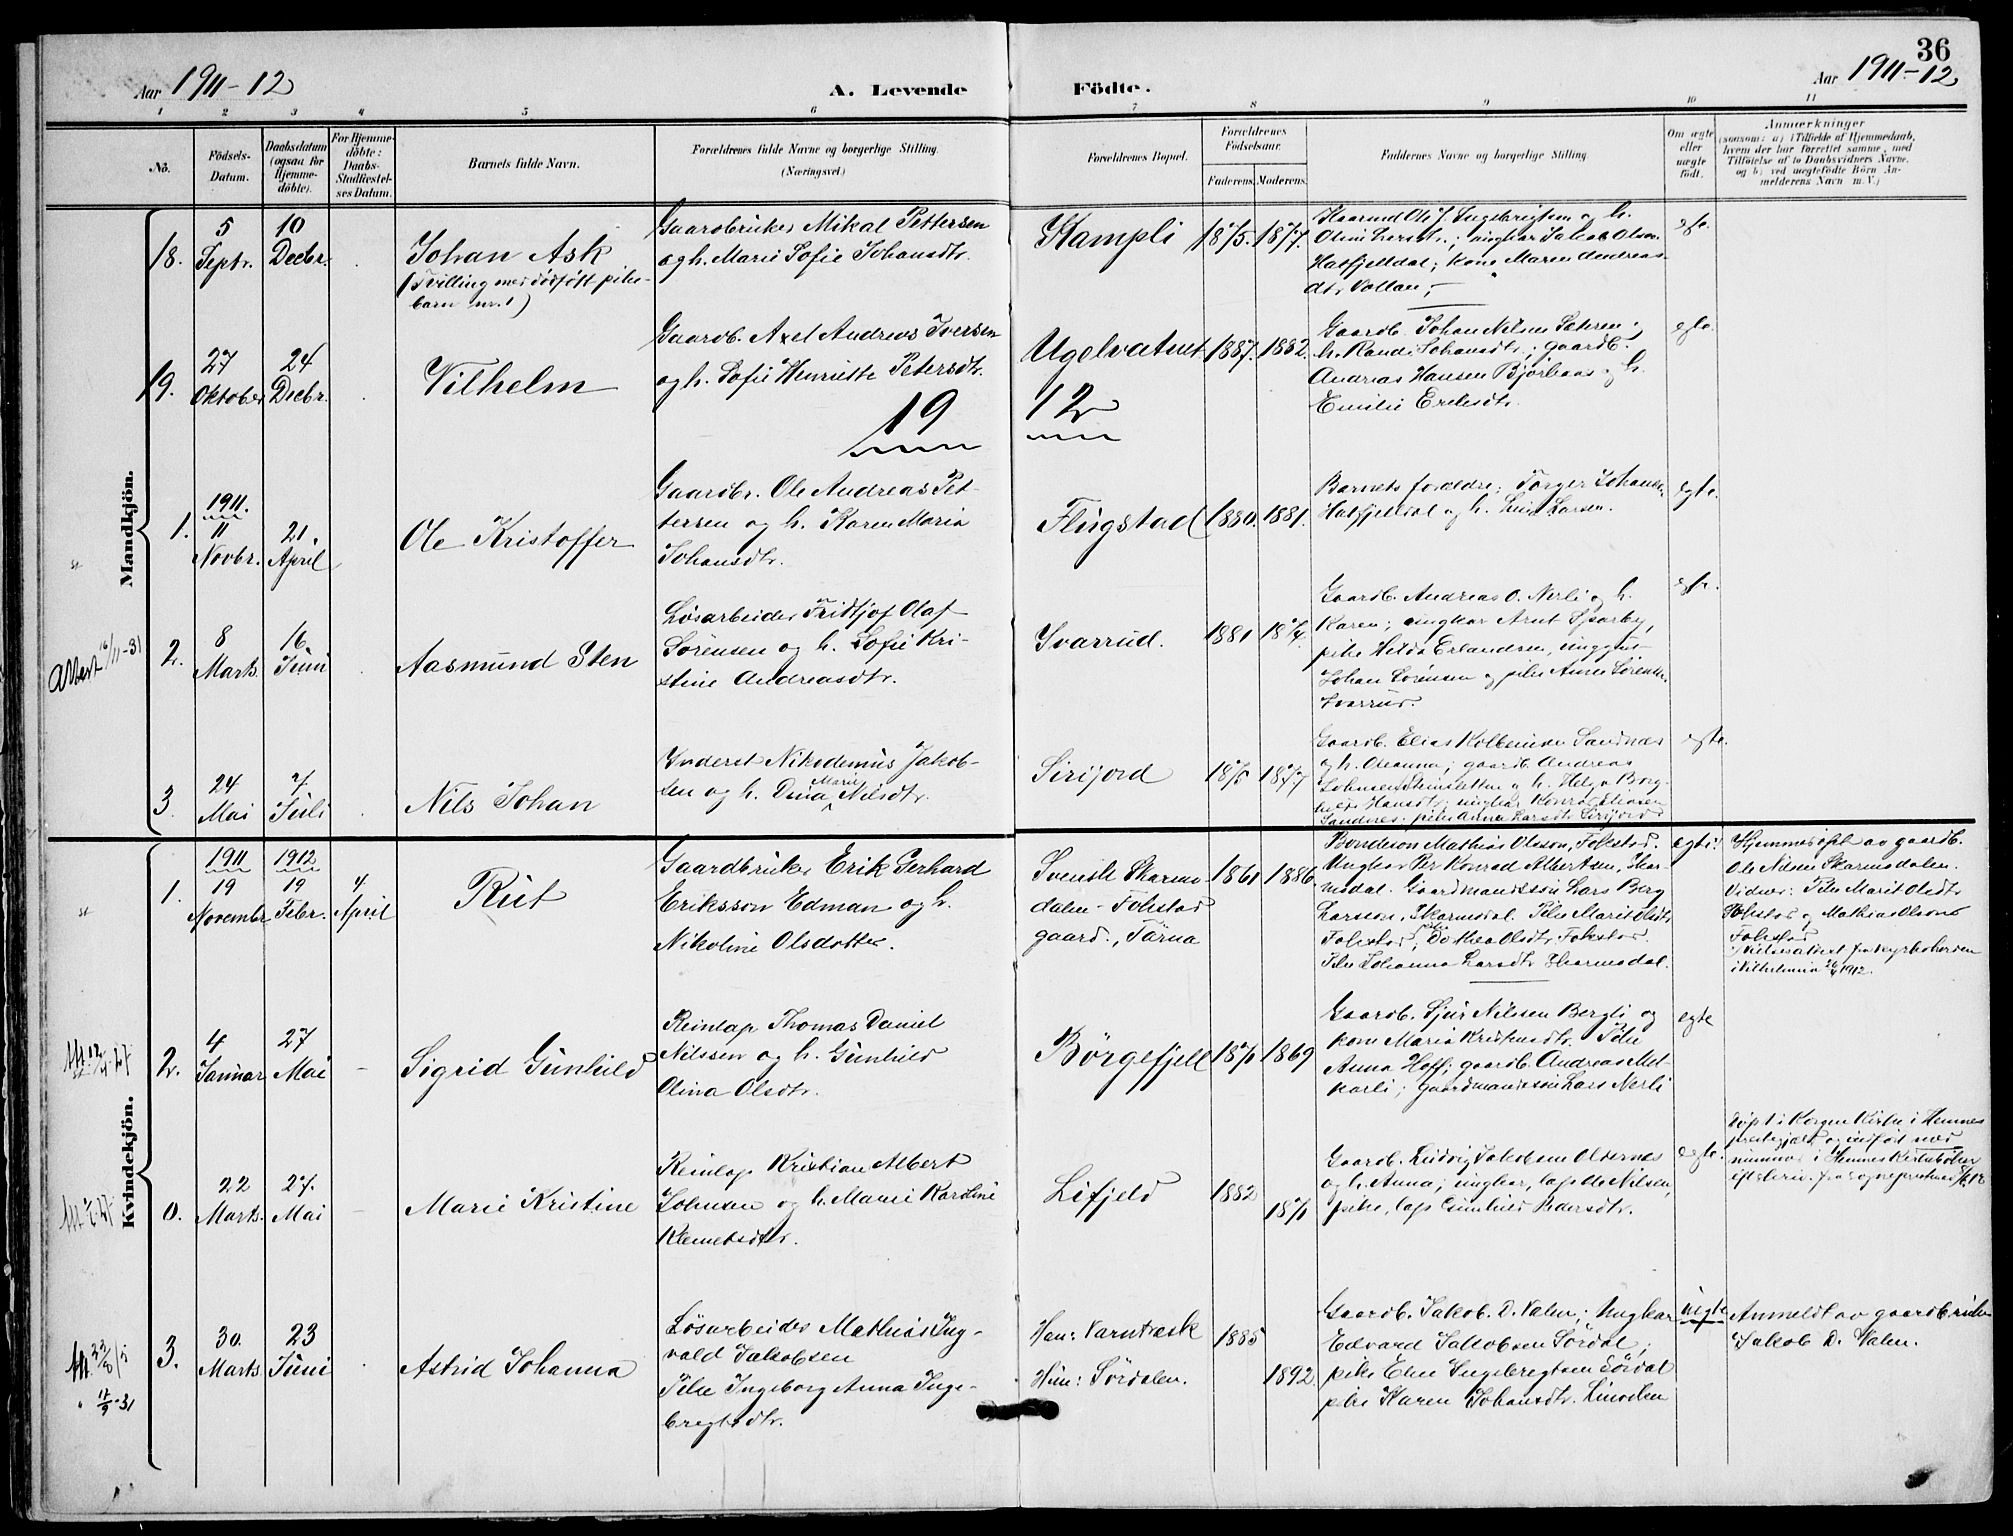 36
Aar 1911-12
A. Levende
Födte.
Aar 1911-12
1 2 3 4 5 6 7 8 9 10 11
No.
Födsels-Datum.
Daabsdatum (ogsaa for Hjemme-döbte).
For Hjemme-döbte: Daabs-Stadfæstel-ses Datum.
Barnets fulde Navn.
Forældrenes fulde Navne og borgerlige Stilling. (Næringsvei.)
Forældrenes Bopæl.
Forældrenes Födselsaar.
Faderens. Moderens.
Faddernes Navne og borgerlige Stilling
Om ægte eller uægte födt.
Anmærkninger
(saasom: a) i Tilfælde af Hjemmedaab, hvem der har forrettet samme, med Tilföielse af to Daabsvidners Navne. og b) ved uægtefödte Börn An-melderens Navn m. V.)
Mandkjön.
18.
5 Septr.
10 Decbr.
Johan Ask
(Tvilling med dödfödt pike-
barn nr. 1)
Gaardbruker Mikal Pettersen
og h. Marie Sofie Johansdtr.
Kampli
1875. 1877.
Olsen
Hatfjelldal; kone Maren Andreas-
dtr. Vollan,
19.
27 Oktober
24 Decbr.
Vilhelm
Gaardb. Axel Andreas Iversen
og h. Sofie Henriette Petersdtr.
19
Ugelvatnet
12
1887. 1882.
Gaardb. Johan Nilsen Sæteren og
h. Randi Johansdtr.; gaardb.
Andreas Hansen Bjørbaas og h.
Emilie Eriksdtr.
egte.
1.
1911.
11 Novbr.
21. April
Ole Kristoffer
Gaardbr. Ole Andreas Pet-
tersen og h. Karen Maria
Johansdtr.
Flugstad
1880. 1881.
Barnets forældre; Torger Johansen
Hatfjeldal og h. Larsen.
egte.
Albert 16/11-31
2.
8 Marts
16 Juni
Aasmund Sten
Løsarbeider Fridtjof Olaf
Sørensen og h. Sofie Kri-
stine Andreasdtr.
Svarrud.
1881 1874.
Gaardb. Andreas O. Nerli og h.
Karen; ungkar Arnt
pike Erlandsen, unggut
Johan Sørensen og pike Anne Sørensen
Svarrud.
egte.
3.
24 Mai
7. Juli
Nils Johan
Inderst Nikodemus Jakob-
sen og h. Dina Marie Nilsdtr.
Sirijord
1875 1877
Gaardb. Elias Kolbeinsen Sandnæs
og h. Oleanna; gaardb. Andreas
Johnsen og h. Helga Borg-
hild Hansdtr., ungkar Konrad
Sandnes. pike Anna Larsdtr. Sirijord
egte.
Kvindekjön.
1.
1911
19 Novembr.
1912
19 Febr.
7. April
Rut
Gaardbruker Erik Gerhard
Eriksson Edman og h.
Nikoline Olsdotter.
Svensk Skarmo-
dalen - Folkstad
gaard., Tärna
1861 1886
Bondeson Mathias Olsson, Folkstad.
Ungkar Per Konrad Albertsen, Skar-
modal. Gaardmandssøn Lars Berg
Larson, Skarmodal. Pike Marit Olsdtr.
Folkstad, pike Dorthea Olsdtr. Folkstad.
Pike Johanna Larsdtr. Skarmodal.
egte.
Hjemmedöpt av gaardb.
Ole Nilsen Skarmodalen.
Vidner: Pike Marit Olsdtr.
Folkstad og Mathias Olsson
Folkstad
1912.
2.
4 Januar
27 Mai
Sigrid Gunhild
Reinlap Thomas Daniel
Nilssen og h. Gunhild
Olina Olsdtr.
Börgefjell
1871 1869
Gaardb. Sjur Nilsen Bergli og
kone Maria Pike
Anna Hoff; gaardb. Andreas Mel-
karli; gaardmandssøn Lars Nerli
egte
0.
22 Marts
27. Mai
Marie Kristine
Reinlap Kristian Albert
Johnsen og h. Marie Karoline
Klemetsdtr.
Lifjeld
1882
1871
Gaardb. Ludvig Jakobsen Oldernes
og h. Anna; ungkar, lap Nilsen,
pike, lap Gunhild Pedersdtr.
egte.
döpt i Korgen Kirke i Hemnes
prestegjeld og indfört med
nummer i Hemnes Kirkeböker
3.
30. Marts
23 Juni
Astrid Johanna
Løsarbeider Mathias Ing-
vald Jakobsen
Pike Ingeborg Anna Inge-
bregtsdtr.
Han: Varntræsk
Hun: Sördalen.
1885
1892
Gaardb. Jakob D. Valen; Ungkar
Edvard Jakobsen Sördal;
pike Else Ingebregtsen Sördal
pike Karen Johansdtr.
uegte
Anmeldt av gaardbruker
Jakob D. Valen.